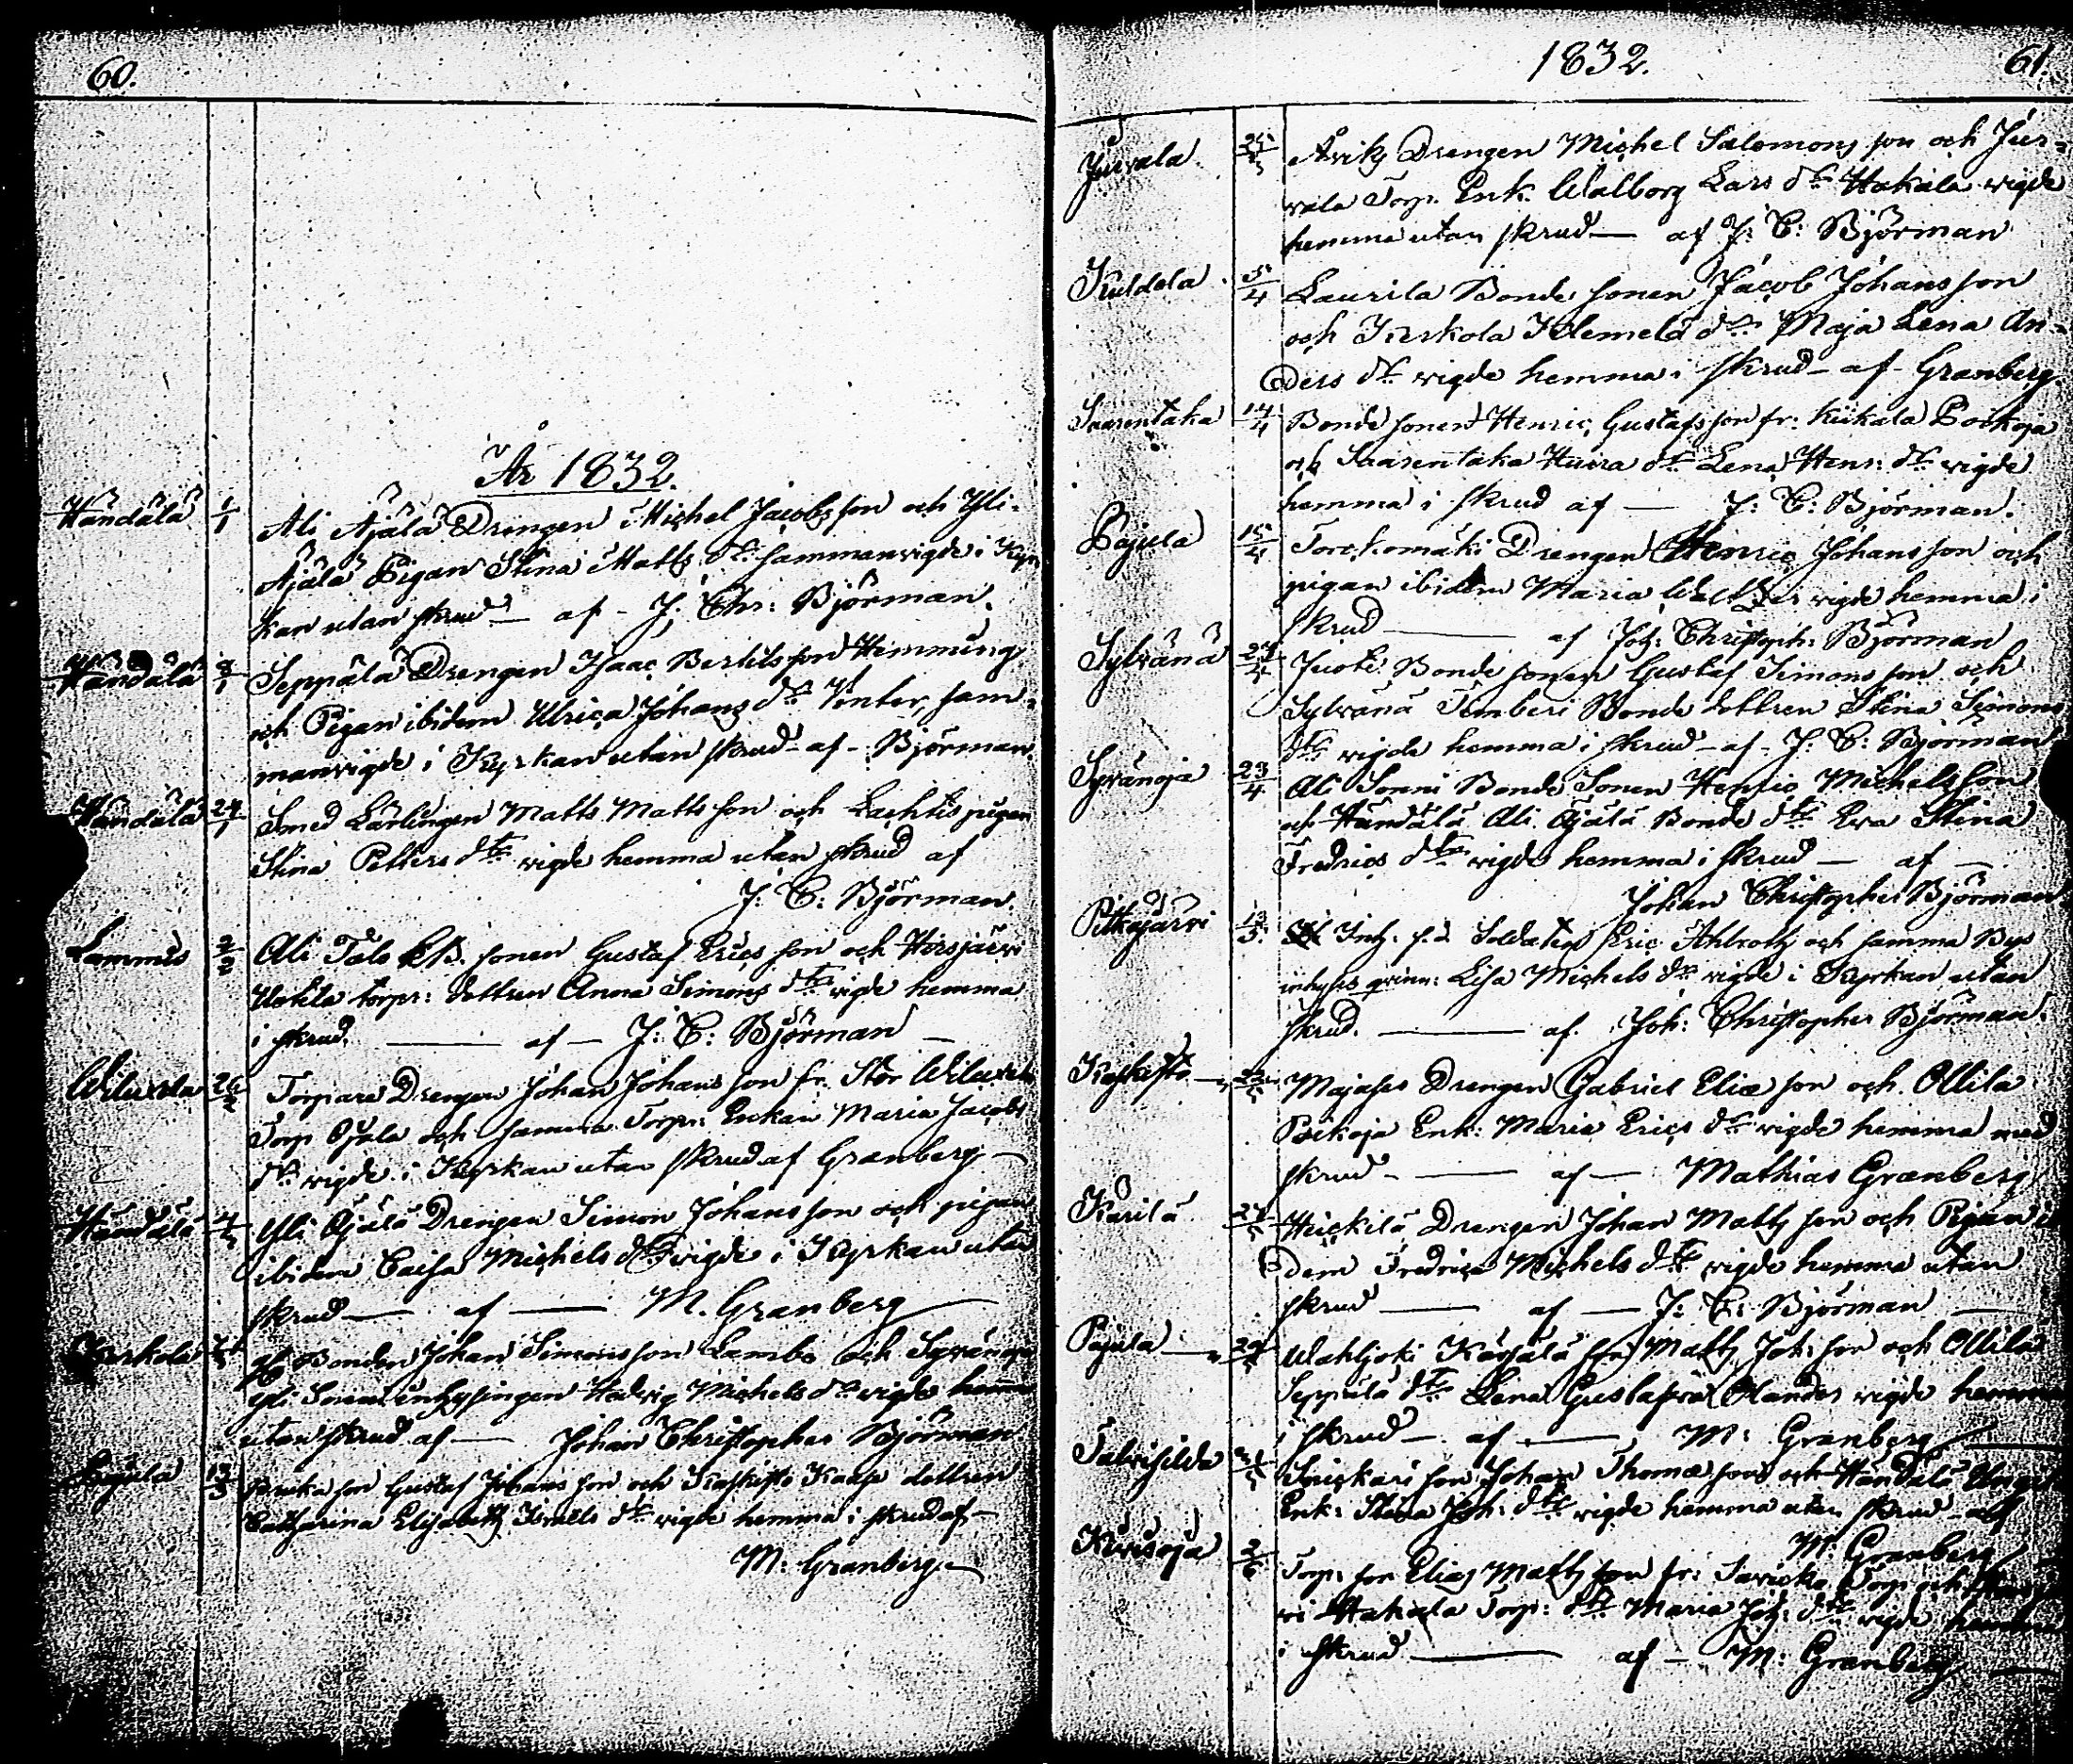 60.
År 1832.
Händälä 1/1 Ali Äjälä Drengen Michel Jacobs son och Yli-
Äjälä Pigan Stina Matts dr. sammanvigde i Kyr
kan utan skrud — af - J. Chr: Björman.
Händälä 8/1 Seppälä Drengen Isaac Bertils son Hemming
och Pigan ibidem Ulrica Johans dr. Venter, sam-
manvigde i Kyrkan utan skrud - af - Björman.
Händälä 24/1 Smed Lärlingen Matts Matts son och Lachtis pigan
Stina Petters dtr vigde hemma utan skrud af
J: C: Björman.
Lammis 2/2 Ali Talo B. sonen Gustaf Erics son och Hirsjärvi
torpr: dottren Anna Simons dtr vigde hemma
i skrud. — af — J: C: Björman —
Wiluxela 26/2 Torpare Drengen Johan Johans son fr. Stor Wiluxela
Torp Ojala och samma Torpr: Enkan Maria Jacobs
dr. vigde i Kyrkan utan skrud af Granberg —
Händälä 4/3 Yli Äjälä Drengen Simon Johans son och pigan
ibidem Caisa Michels dtr vigde i Kyrkan utan
skrud — af — M. Granberg
Kerkola Bonden Johan Simons son Lambo och Syvänoja
Yli Sonni inhysingen Hedvig Michels dr. vigde hemma
utan skrud af — Johan Christopher Björman
Pajula 13/3 son Gustaf Johans son och Kaskisto Kaase dottren
Catharina Elisabeth Israels dr. vigde hemma i skrud af —
M: Granberg —
1832. 61.
Juvala 25/3 Äviks Drengen Michel Salomons son och Ju-
vala Torp. Enk. Walborg Lars dr. Hakala vigde
hemma utan skrud — af J: C: Björman
Kuldela 5/4 Laurila Bonde sonen Jacob Johans son
och Kerkola Klemelä dr. Maja Lena An-
ders dr. vigde hemma i skrud - af - Granberg.
Saarentaka 14/4 Bonde sonen Henric Gustafs son fr: Kiikala Påikoja
och Saarentaka dr. Lena Henr: dr. vigde
hemma i skrud af — J: C: Björman.
Pajula 15/4 Torckomäki Drengen Henric Johans son och
pigan ibidem Maria vigde hemma i
skrud — af Joh: Christoph: Björman
Sylvänä Bonde sonen Gustaf Simons son och
Sylvänä Temberi Bonde dottren Stina Simons
dtr vigde hemma i skrud - af - J: C: Björman
Syvänoja 23/4 Ali Sonni Bonde Sonen Henric Michels son
och Händälä Ali Äjälä Bonde dtr Eva Stina
Fredrics dtr vigde hemma i skrud — af —
Johan Christopher Björman
Pitkäjärvi 13/5 Inh. f.d. Soldaten Eric Ahlroth och samma Bys
inhyses qvinn: Lisa Michels dr vigde i Kyrkan utan
skrud. — af. Joh: Christopher Björman.
Kaskisto Majases Drengen Gabriel Eliæ son och Ollila
Påikoja Enk: Maria Erics dr vigde hemma med
skrud — af — Mathias Granberg
Karilä Heickilä Drengen Johan Matts son och Pigan i-
dem Fredrica Michels dtr vigde hemma utan
skrud — af — J: C: Björman —
Pajula Wahljoki Kärjälä son Matts Joh: son och Ollila
Seppälä dtr Lena Gustafva Elander vigde hemma
i skrud — af — M: Granberg
Talvisilda son Johan Thomæ son och Händälä
Enk: Stina Joh: dtr vigde hemma utan skrud — af
M: Granberg
Kivisoja 2/6 Torp: son Elias Matts son fr: Torp och
Hakala Torp: dtr Maria Joh: dtr vigde hemma
i skrud — af — M: Granberg —